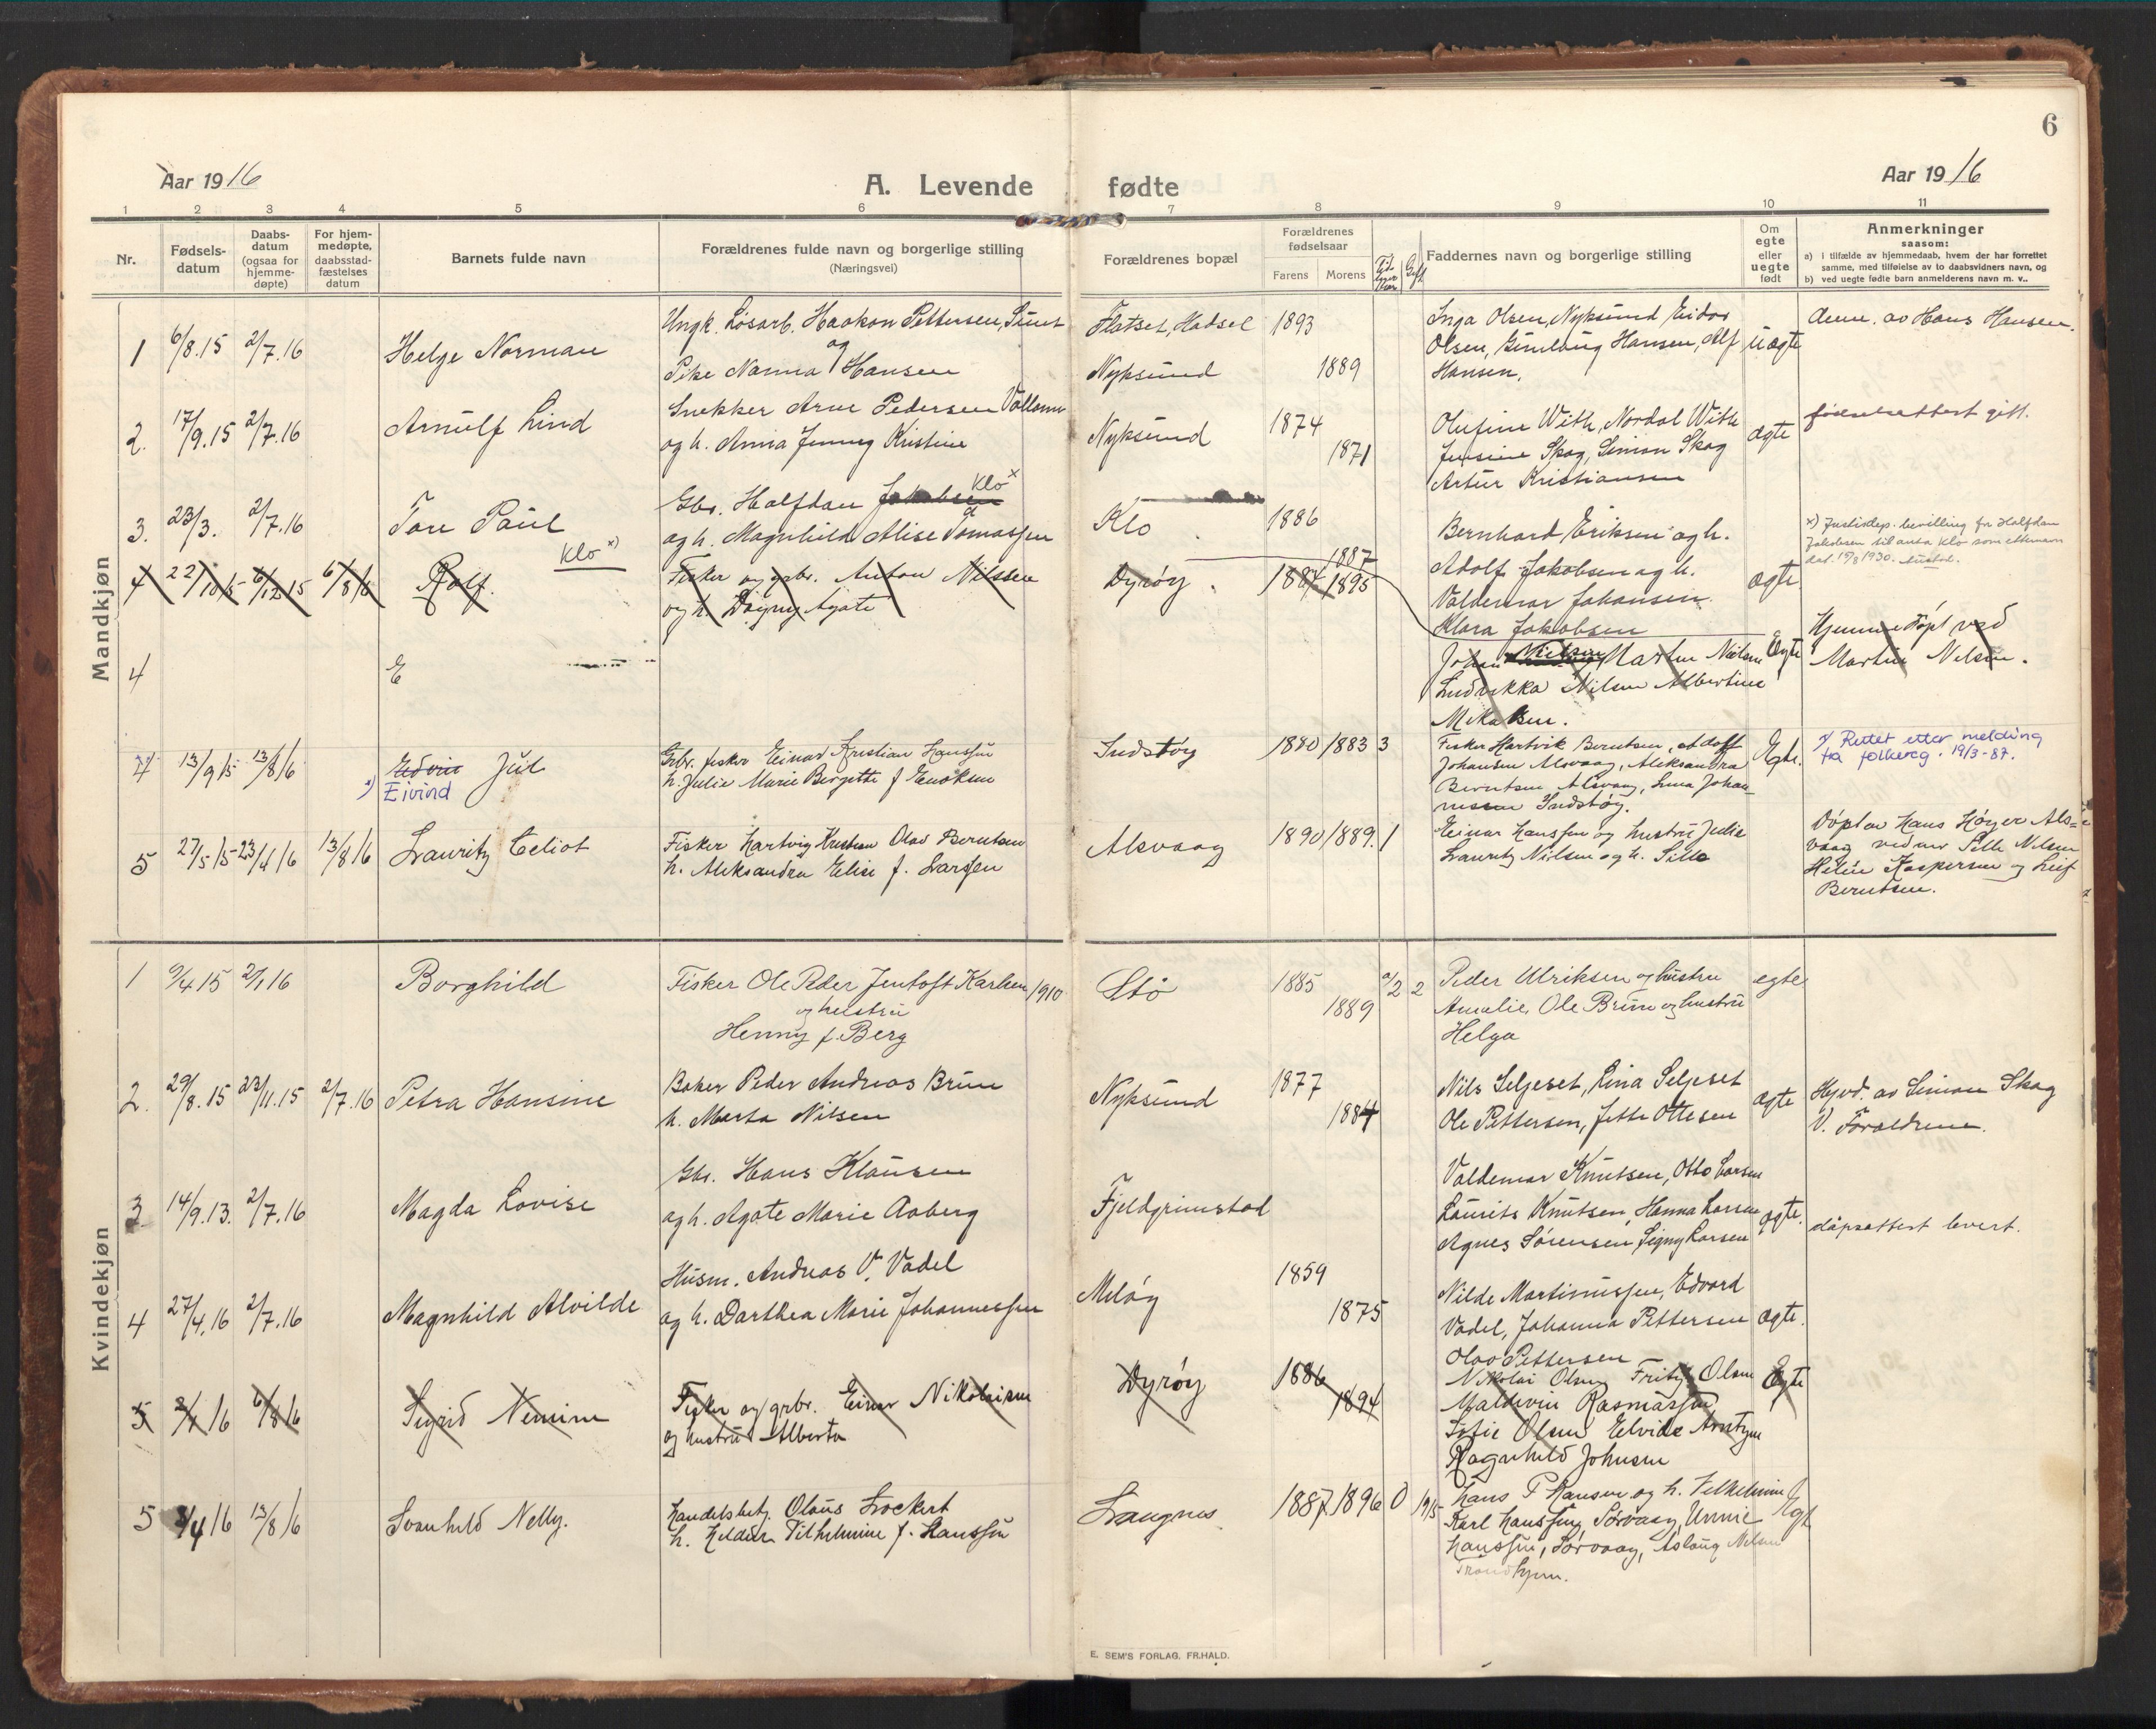 6
Aar 1916
A. Levende fødte
Aar 1916
1 2 3 4 5 6 7 8 9 10 11
Nr.
Fødsels-
datum
Daabs-
datum
(ogsaa for
hjemme-
døpte)
For hjem-
medøpte,
daabsstad-
fæstelses
datum
Barnets fulde navn
Forældrenes fulde navn og borgerlige stilling
(Næringsvei)
Forældrenes bopæl
Forældrenes
fødselsaar
Farens
Morens
Faddernes navn og borgerlige stilling
Om
egte
eller
uegte
født
Anmerkninger
saasom:
a) i tilfælde av hjemmedaab, hvem der har forrettet
samme, med tilføielse av to daabsvidners navn, og
b) ved uegte fødte barn anmelderens navn m. v..
Mandkjøn
1 6/8.15 2/7.16 Helge Norman
Ungk. Løsarb. Haakon Pettersen,
og
Pike Nanna Hansen
Flatset, Hadsel 1893
Nyksund 1889
Inga Olsen, Nyksund Eidar
Olsen, Gunlaug Hansen, Alf
Hansen.
uægte
Anm. av Hans Hansen.
2. 17/9.15 2/7.16 Arnulf Lind
Snekker Arne Pedersen
og h. Anna Jenny Kristine
Nyksund 1874
1871
Olufine With, Nordal With
Jensine Skog, Simon Skog
Artur Kristiansen
ægte
fødselsattest gitt.
3. 23/3. 2/7.16 Tore Paul
Klo x)
Gbr. Halfdan Jakobsen Klo x
og h. Magnhild Alise Tomassen
Klo 1886
1887
Bernhard Eriksen og h.
Adolf Jakobsen og h.
Valdemar Johansen
Klara Jakobsen
ægte
x) Justisdep. bevilling for Halfdan
Jakobsen til anta Klo som etternavn
dat. 15/8 1930.
4 22/10 15 6/12 15 6/8 16 Rolf.
Fisker og grbr. Anton Nilssen
og h. Dagny Agate
Dyrøy 1887 1895
Johan Nielsen Martin Nielsen
Ludvikka Nilsen Albertine
Mikalsen.
Egte
Hjemmedøpt ved
Martin Nelsen.
4 E
4 13/9 15 13/8 16 Edvin Jul
x) Eivind
Grbr. fisker Einar Kristian Hanssen
h. Julie Marie Bergitte f Enoksen
1880/1883 3
Fisker Hartvik Berntsen, Adolf
Johansen Alsvaag, Aleksandra
Berntsen, Alsvaag, Lina Johan-
nessen
Egte.
x) Rettet etter melding
fra folkereg. 19/3-87.
5 27/5 15 23/4 16 13/8 16 Lauritz Celiot
Fisker Hartvig Kristian Olav Berntsen
h. Aleksandra Elise f. Larssen
Alsvaag 1890/1889. 1
Einar Hanssen og hustru Julie
Lauritz Nilsen og h. Sille
Døpt av Hans Høyer Als-
vaag vidner Sille Nilsen
Helene Kaspersen og Leif
Berntsen.
Kvindekjøn
1 9/4 15 2/1 16 Borghild
Fisker Ole Peder Jentoft Karlsen 1910
og hustru
Henny f. Berg
Stø 1885
1889 2 2
Peder Ulriksen og hustru
Amalie, Ole Brun og hustru
Helga
egte
2. 29/8.15 23/11.15 2/7.16 Petra Hansine
Baker Peder Andreas Brun
h. Marta Nilsen
Nyksund 1877
1884
Nils Seljeset, Lina Seljeset
Ole Pettersen, Jette Ottesen
ægte
Hjvd. av Simon Skog
V. Forældrene.
3 14/9.13. 2/7.16 Magda Lovise
Gbr. Hans Klausen
og h. Agate Marie Aaberg
Fjeldgrimstad
Valdemar Knutsen, Otto Larsen
Laurits Knutsen, Hanna Larsen
Agnes Sørensen, Signy Larsen
ægte.
dåpsattest levert.
4 27/4.16 2/7.16 Magnhild Alvilde
Husm. Andreas V. Vadel
og h. Darthea Marie Johannessen
Meløy 1859
1875
Nilde Martinussen, Edvard
Vadel, Johanna Pettersen
Olav Pettersen
ægte.
5 16 6/8 16 Sigrid Nemine
Fisker og grbr. Einar Nikolaisen
og hustru Alberta
Dyrøy 1886
1894
Nikolai Olsen, Fritjof Olsen
Maldivin Rasmassen
Sofie Olsen Elvide Arntzen
Ragnhild Johnsen
Egte
5 4 16 13/8 16 Svanhild Nelly.
Handelsbetj. Olaus Lockert
h. Vilhelmine f. Hanssen
Langnes 1887. 1896 0 19/5
Hans P Hansen og h. Vilhelmine
Karl Hanssen, Sørvaag, Unnie
Hanssen, Sørvaag, Aslaug Nelsen
Trondhjem.
Egt
E. SEM'S FORLAG. FR.HALD.